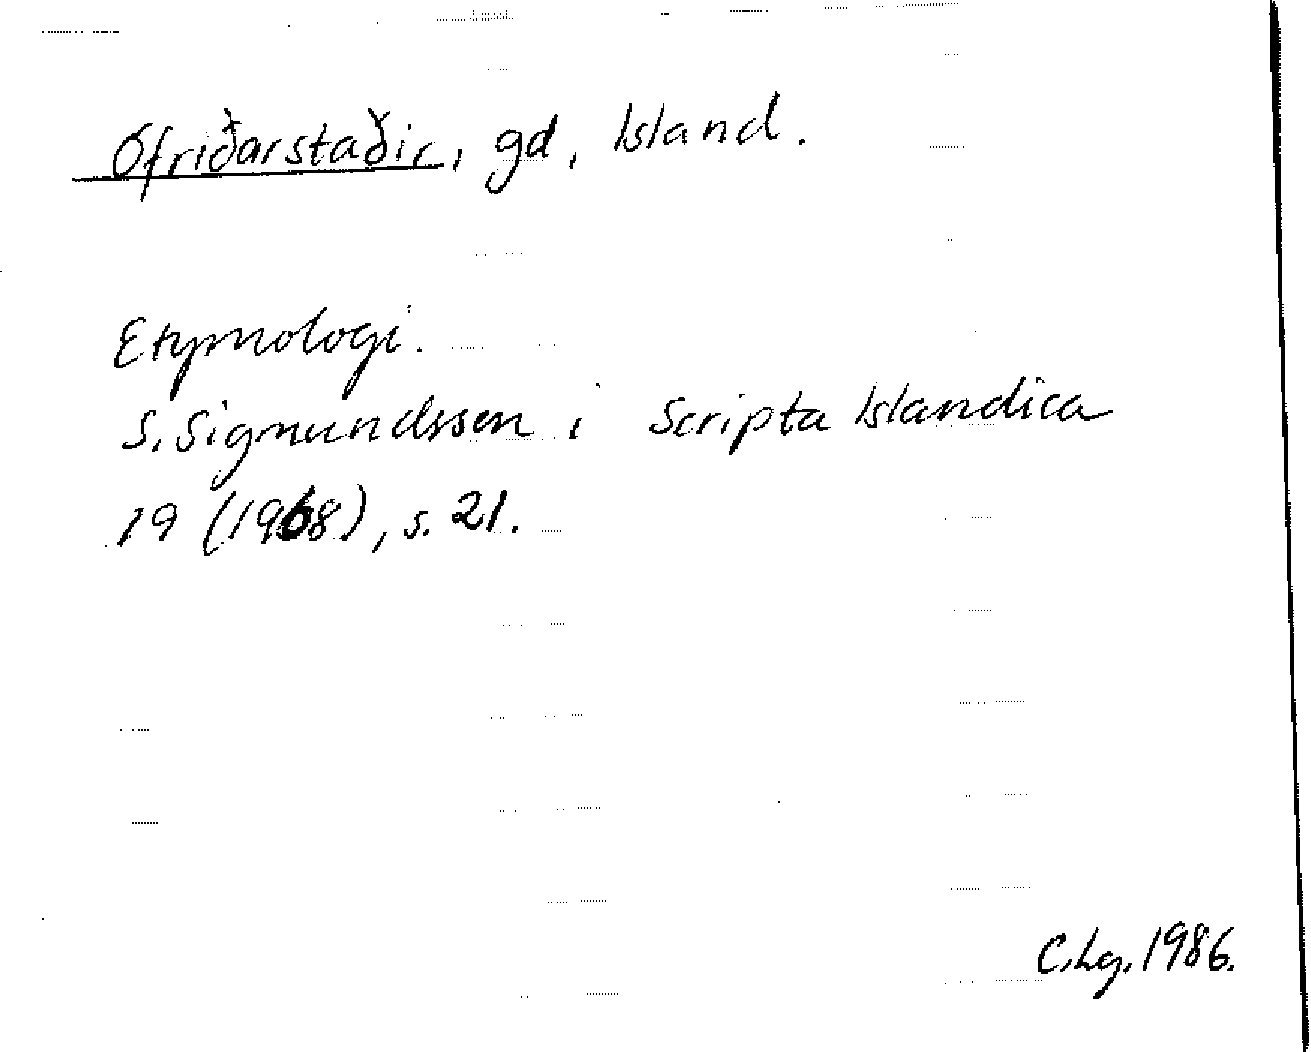 Ófriðarstaðir, gd, Island.
Etymologi.
S. Sigmundssen i Scripta Islandica
19 (1968), s. 21.
C.Lg. 1986.